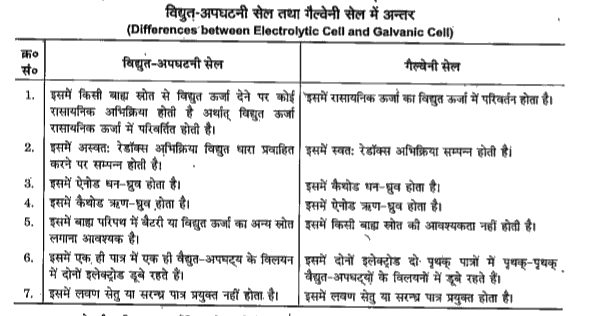 विद्युत-अपघटनी सेल तथा गैल्वेनी सेल में अन्तर
(Differences between Electrolytic Cell and Galvanic Cell)
क्र०
सं०
विद्युत-अपघटनी सेल
गैल्वेनी सेल
1. इसमें किसी बाह्य स्रोत से विद्युत ऊर्जा देने पर कोई
रासायनिक अभिक्रिया होती है अर्थात् विद्युत ऊर्जा
रासायनिक ऊर्जा में परिवर्तित होती है।
इसमें रासायनिक ऊर्जा का विद्युत ऊर्जा में परिवर्तन होता है।
2. इसमें अस्वतः रेडॉक्स अभिक्रिया विद्युत धारा प्रवाहित
करने पर सम्पन्न होती है।
इसमें स्वतः रेडॉक्स अभिक्रिया सम्पन्न होती है।
3. इसमें ऐनोड धन-ध्रुव होता है।
इसमें कैथोड धन-ध्रुव होता है।
4. इसमें कैथोड ऋण-ध्रुव होता है।
इसमें ऐनोड ऋण-ध्रुव होता है।
5. इसमें बाह्य परिपथ में बैटरी या विद्युत ऊर्जा का अन्य स्रोत
लगाना आवश्यक है।
इसमें किसी बाह्य स्रोत की आवश्यकता नहीं होती है।
6. इसमें एक ही पात्र में एक ही वैद्युत-अपघट्य के विलयन
में दोनों इलेक्ट्रोड डूबे रहते हैं।
इसमें दोनों इलेक्ट्रोड दो पृथक् पात्रों में पृथक्-पृथक्
वैद्युत-अपघट्यों के विलयनों में डूबे रहते हैं।
7. इसमें लवण सेतु या सरन्ध्र पात्र प्रयुक्त नहीं होता है।
इसमें लवण सेतु या सरन्ध्र पात्र प्रयुक्त होता है।